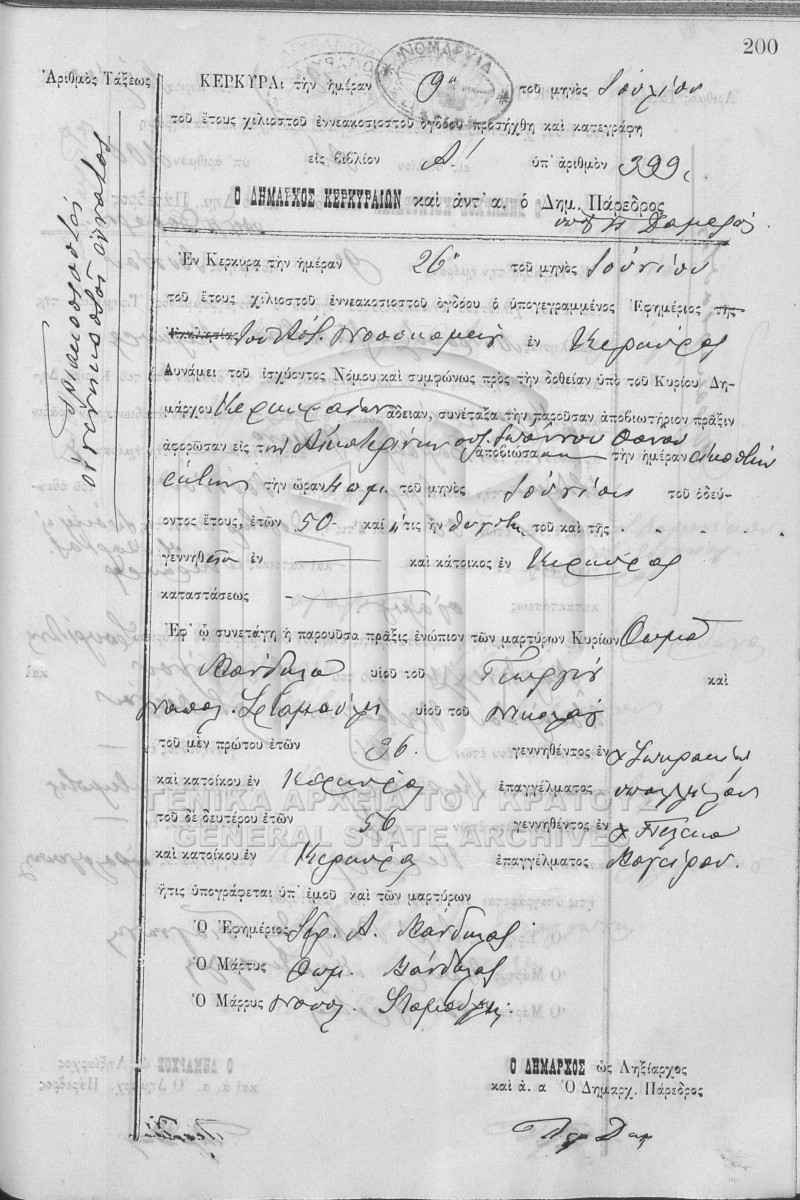 200
ΝΟΜΑΡΧΙΑ
Ἀριθμὸς Τάξεως
Τριακοσιοστὸς
ἐνενηκοστὸς ἔννατος
ΚΕΡΚΥΡΑι τὴν ἡμέραν 9ῃ τοῦ μηνὸς Ἰουλίου
τοῦ ἔτους χιλιοστοῦ ἐννεακοσιοστοῦ ὀγδόου προσήχθη καὶ κατεγράφη
εἰς βιβλίον Α! ὑπ' ἀριθμὸν 399
Ο ΔΗΜΑΡΧΟΣ ΚΕΡΚΥΡΑΙΩΝ καὶ ἀντ' α. ὁ Δημ. Πάρεδρος
Ἐν Κερκυρα τὴν ἡμέραν 26ῃ τοῦ μηνὸς Ἰουνίου
τοῦ ἔτους χιλιοστοῦ ἐννεακοσιοστοῦ ὀγδόου ὁ ὑπογεγραμμένος Ἐφημέριος τῆς
Ἐκκλησίας Νοσοκομείου ἐν Κερκύρας
Δυνάμει τοῦ ἰσχύοντος Νόμου καὶ συμφώνως πρὸς τὴν δοθεῖσαν ὑπὸ τοῦ Κυρίου Δη-
μάρχου Κερκυραίων ἄδειαν, συνέταξα τὴν παροῦσαν ἀποβιωτήριον πρᾶξιν
ἀφορῶσαν εἰς τὴν Αἰκατερίνην Ἰωάννου ἀποβιώσα τὴν ἡμέραν εἰκοστὴν
τὴν ὥραν 4 π.μ. τοῦ μηνὸς Ἰουνίου τοῦ ὁδεύ-
οντος ἔτους, ἐτῶν 50 καὶ ἥτις ἦν θυγάτηρ τοῦ καὶ τῆς . . . .
γεννηθεῖσα ἐν καὶ κάτοικος ἐν Κερκύρας
καταστάσεως
Ἐφ' ᾧ συνετάγη ἡ παροῦσα πρᾶξις ἐνώπιον τῶν μαρτύρων Κυρίων Θωμᾶ
Βάνδαλο υἱοῦ τοῦ Γεωργίου καὶ
Ναπολ. Σταματέλη υἱοῦ τοῦ Νικολάου
τοῦ μὲν πρώτου ἐτῶν 36. γεννηθέντος ἐν χ Σωκρακίων
καὶ κατοίκου ἐν Κερκύρᾳ ἐπαγγέλματος ὑπαλλήλου
τοῦ δὲ δευτέρου ἐτῶν 56 γεννηθέντος ἐν χ Πέλεκα
καὶ κατοίκου ἐν Κερκύρᾳ ἐπαγγέλματος Μαγείρου.
ἥτις ὑπογράφεται ὑπ' ἐμοῦ καὶ τῶν μαρτύρων
Ὁ Ἐφημέριος Σπ. Α. Βάνδαλος
Ὁ Μάρτυς Θωμ. Βάνδαλος
Ὁ Μάρρυς Ναπολ.
Ο ΔΗΜΑΡΧΟΣ ὡς Ληξίαρχος
καὶ ἀ. α Ὁ Δημαρχ. Πάρεδρος
ΓΕΝΙΚΑ ΑΡΧΕΙΑ ΤΟΥ ΚΡΑΤΟΥΣ
GENERAL STATE ARCHIVES